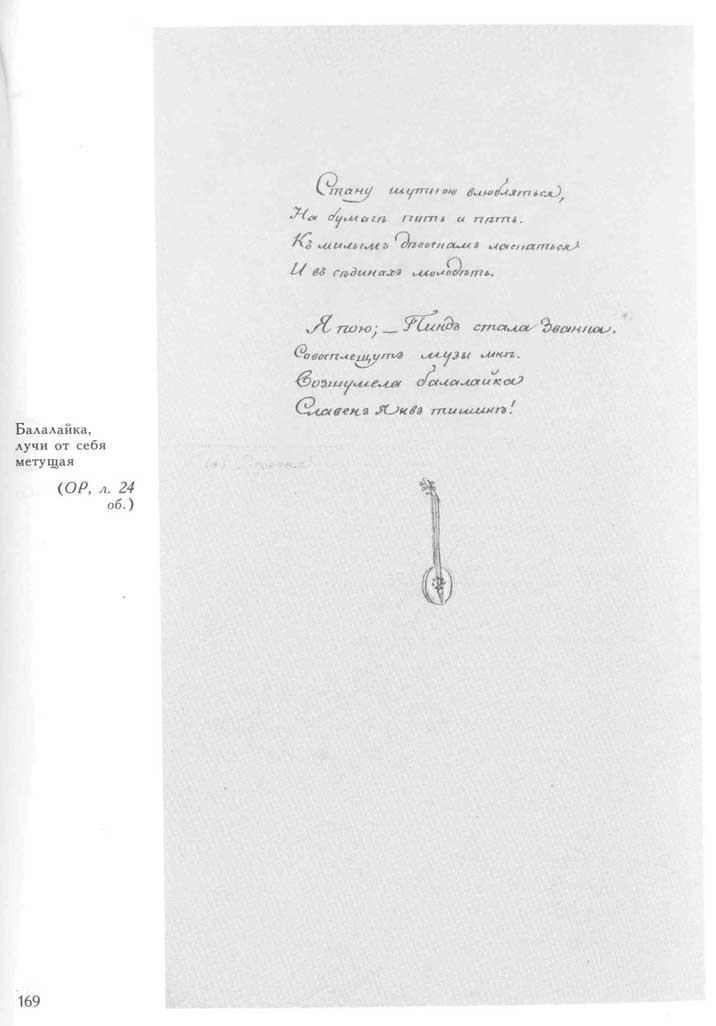 Стану шуткою влюбляться,
На бумагѣ пить и пѣть.
Къ милымъ дѣвочкамъ ласкаться
И въ сѣдинахъ молодѣть.
Я пою; — Пиндъ стала Званка.
Совосплещутъ музы мнѣ.
Возгумела балалайка
Славенъ я и въ тишинѣ!
Балалайка,
лучи от себя
метущая
(ОР, л. 24
об.)
169